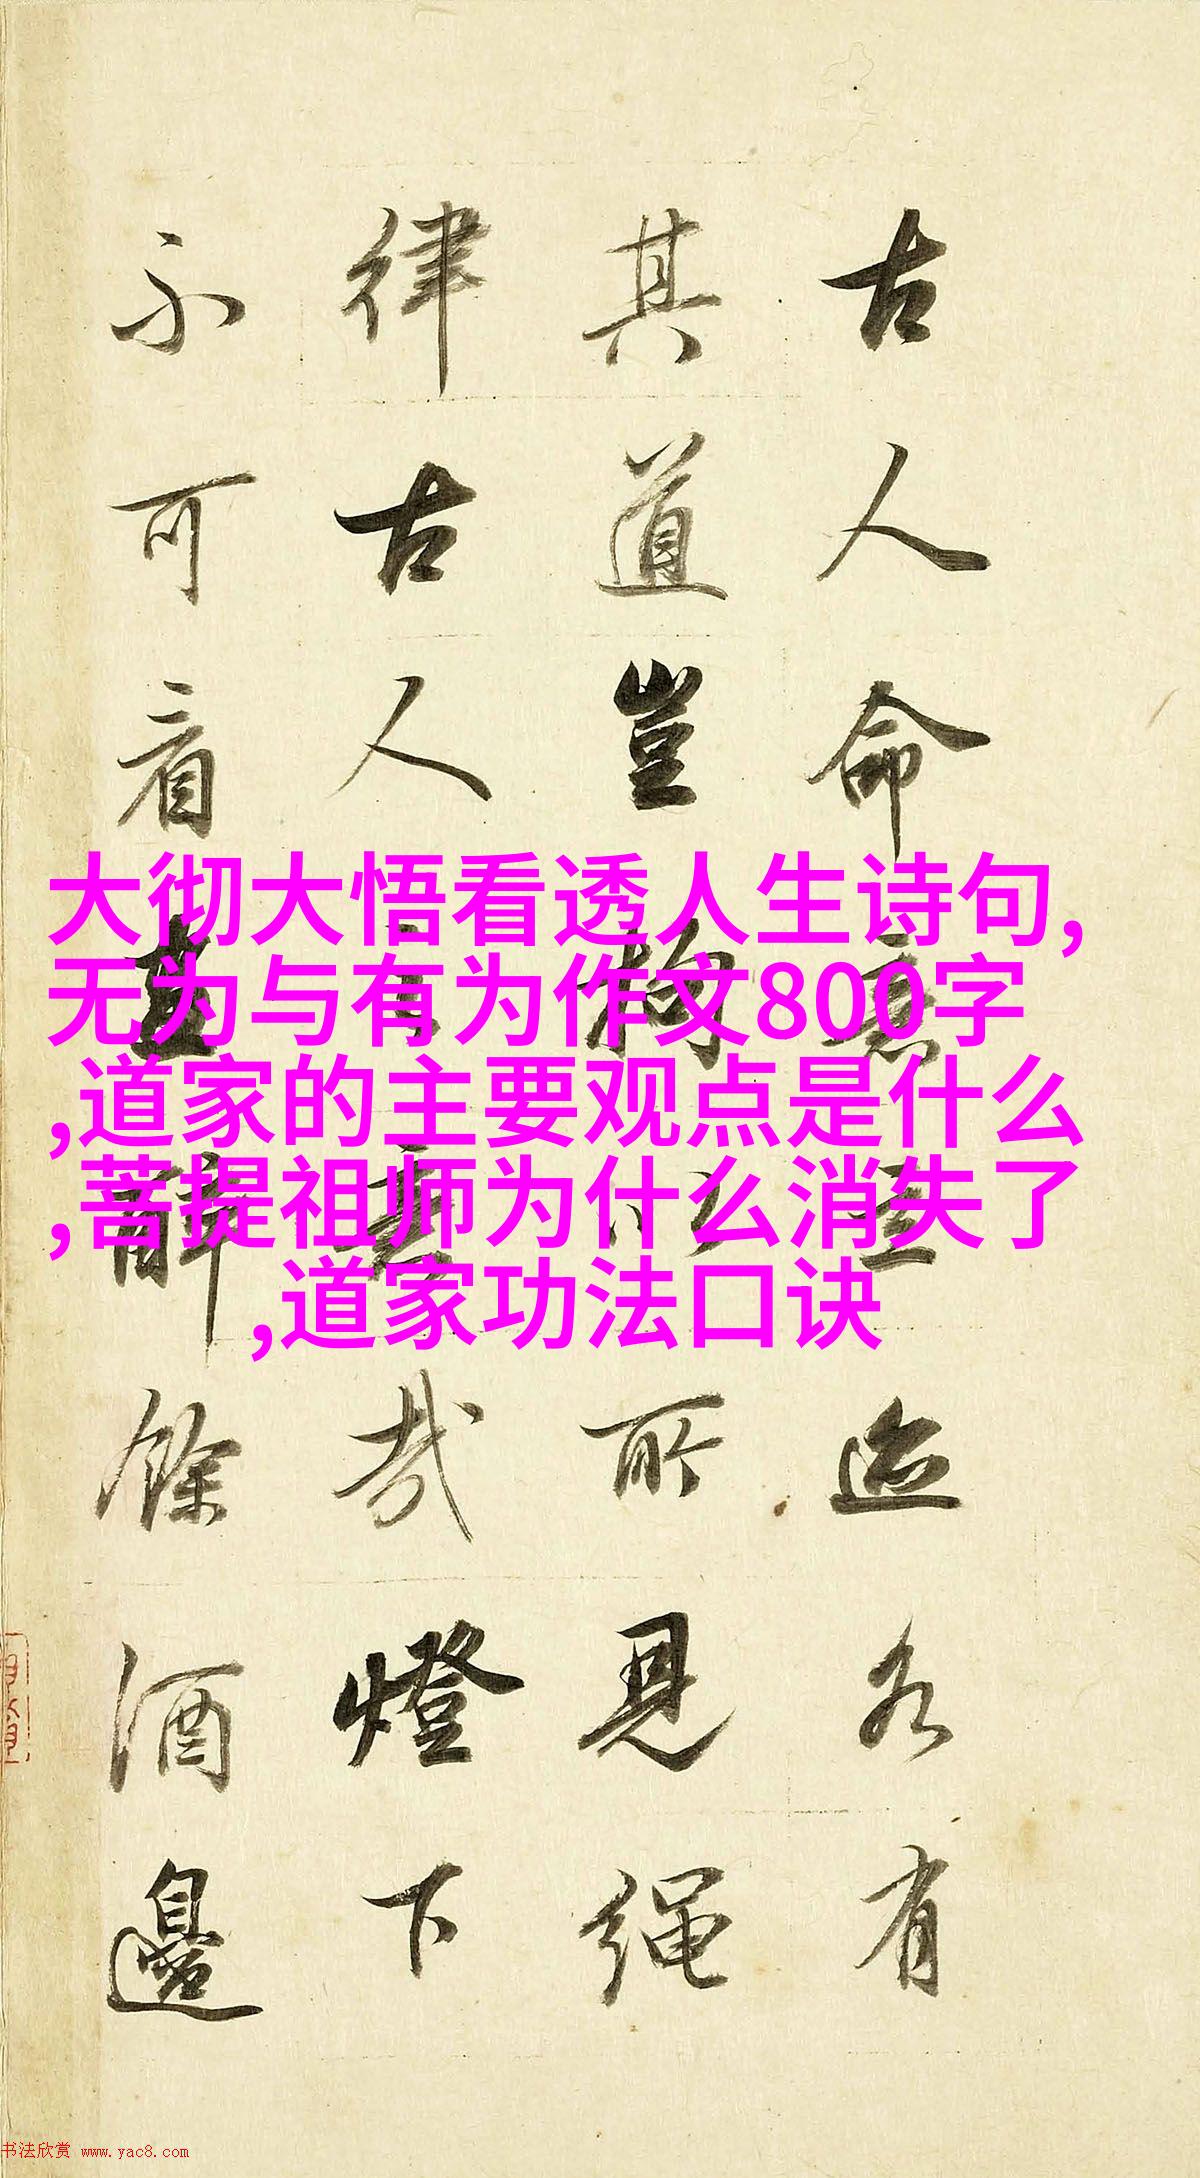 古人命意立迹各有
其道豈拘以所見繩
律古人之意哉燈下
不可看畫醉餘酒邊
大彻大悟看透人生诗句,
无为与有为作文800字
,道家的主要观点是什么
,菩提祖师为什么消失了
,道家功法口诀
书法欣赏 www.yac8.com